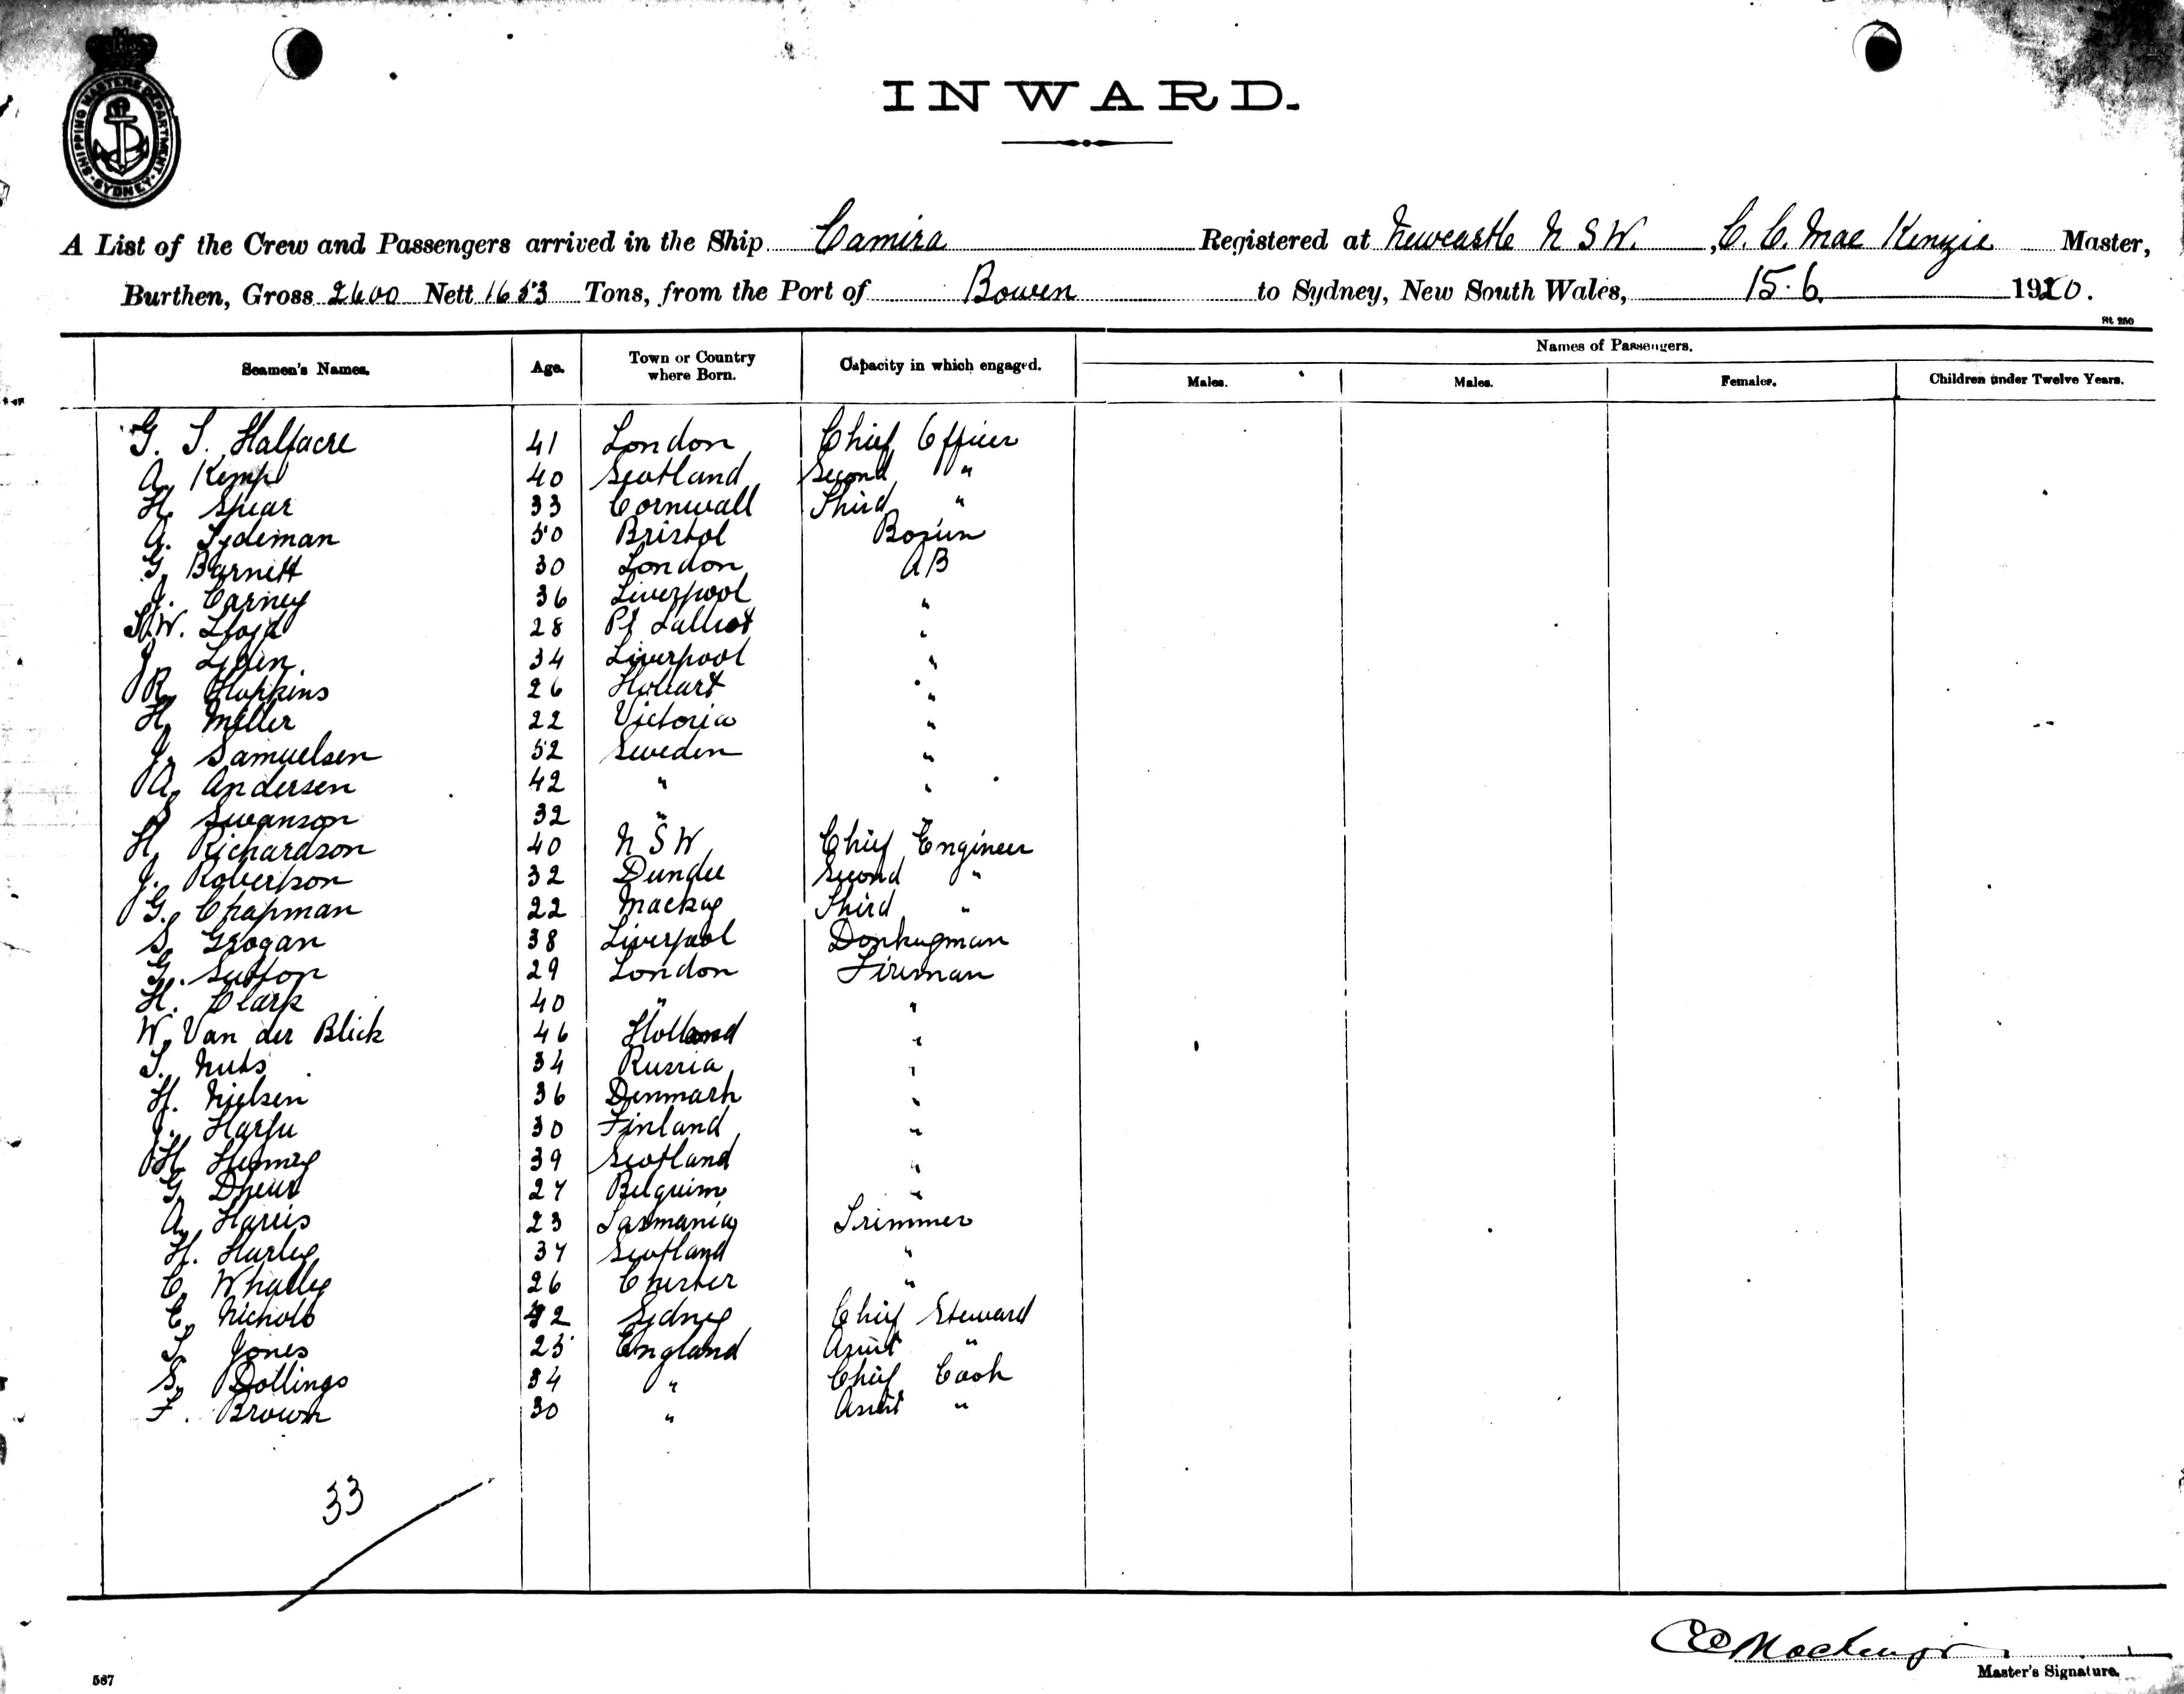 SHIPPING MASTERS DEPARTMENT · SYDNEY ·
INWARD.
A List of the Crew and Passengers arrived in the Ship Camira Registered at Newcastle N S W. , C. C. Mac Kenzie Master,
Burthen, Gross 2600 Nett 1653 Tons, from the Port of Bowen to Sydney, New South Wales, 15.6. 1920.
Rt 250
Seamen's Names. Age. Town or Country where Born. Capacity in which engaged. Names of Passengers.
Males. Males. Females. Children under Twelve Years.
G. S. Halfacre 41 London Chief Officer
A. Kemp 40 Scotland Second "
H. Spear 33 Cornwall Third "
A. Sydeman 50 Bristol Bosun
G. Barnett 30 London AB
J. Carney 36 Liverpool "
W. Lloyd 28 Pt "
J. 34 Liverpool "
R. Hopkins 26 Hobart "
H. Miller 22 Victoria "
J. Samuelsen 52 Sweden "
A. Andersen 42 " "
S Swanson 32 "
H. Richardson 40 N S W Chief Engineer
J. Robertson 32 Dundee Second "
G. Chapman 22 Mackay Third "
S. Grogan 38 Liverpool Donkeyman
G. Sutton 29 London Fireman
H. Clark 40 " "
W. Van der Blick 46 Holland "
T. Nuts 34 Russia "
H. Nielsen 36 Denmark "
J. Harju 30 Finland "
H. 39 Scotland "
G. 27 Belguim "
A. Harris 23 Tasmania Trimmer
H. Hurley 37 Scotland "
C. Whalley 26 Chester "
C. Nichols 42 Sydney Chief Steward
T. Jones 25 England Assist "
S. Dollings 34 " Chief Cook
F. Brown 30 " Assist "
33
C C Mackenzie
Master's Signature.
567